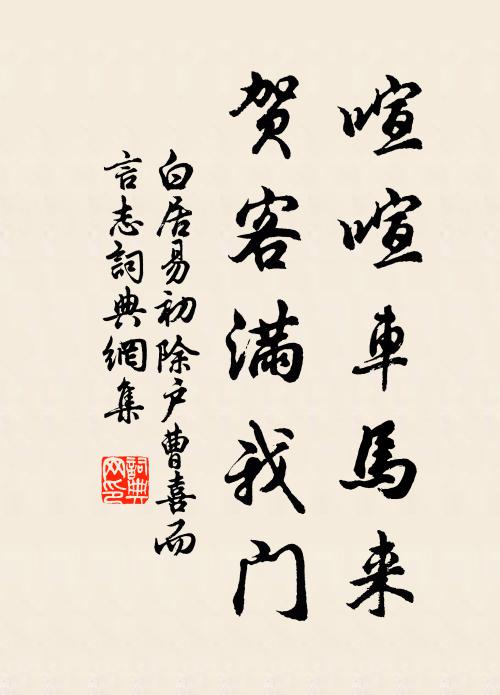 喧喧車馬来
賀客满我门
白居易初除户曹喜而
言志詞典網集
詞典
网印